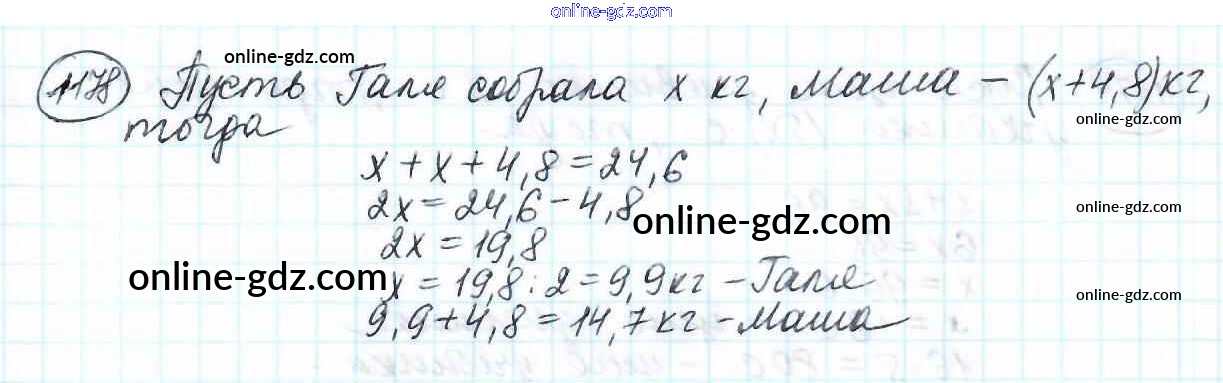 online-gdz.com
online-gdz.com
1178 Пусть Галя собрала x кг, Маша – (x+4,8)кг,
online-gdz.com
тогда
x + x + 4,8 = 24,6
2x = 24,6 – 4,8
online-gdz.com
online-gdz.com
2x = 19,8
online-gdz.com
x = 19,8 : 2 = 9,9кг – Галя
online-gdz.com
9,9+4,8 = 14,7кг – Маша